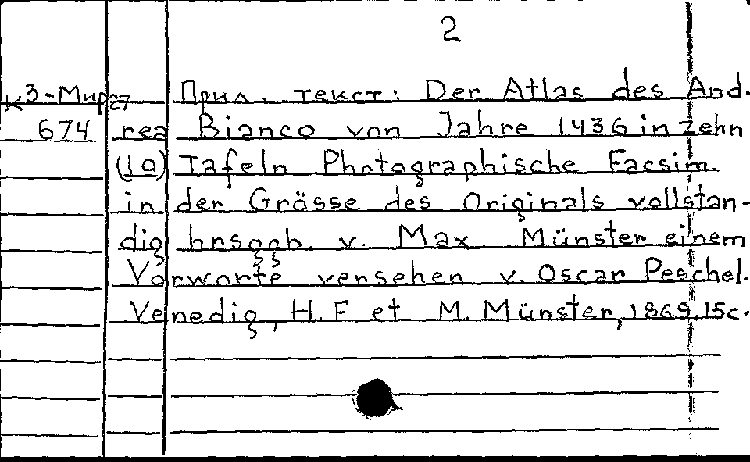 2
К3-Мир27 Прил. текст: Der Atlas des And-
674 rea Bianco von Jahre 1436 in zehn
(10) Tafeln Photographische Facsim.
in der Grösse des Originals vollstan-
dig hrsggb. v. Max Münster einem
Vorworte versehen v. Oscar Peschel.
Venedig, H.F et M. Münster, 1869. 15c.